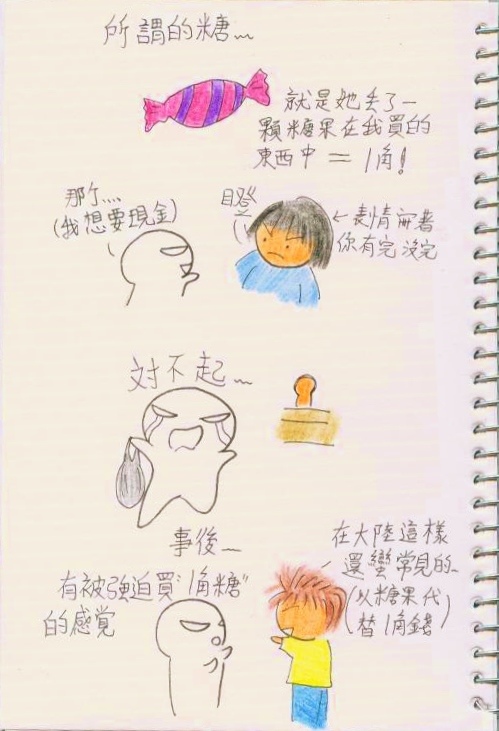 所謂的糖~
就是她丟了一
顆糖果在我買的
東西中=1角!
那个....
(我想要現金)
瞪
←表情寫著
你有完沒完
対不起~
事後~
在大陸這樣
還蠻常見的~
(以糖果代)
(替1角錢)
有被強迫買"1角糖"
的感覚